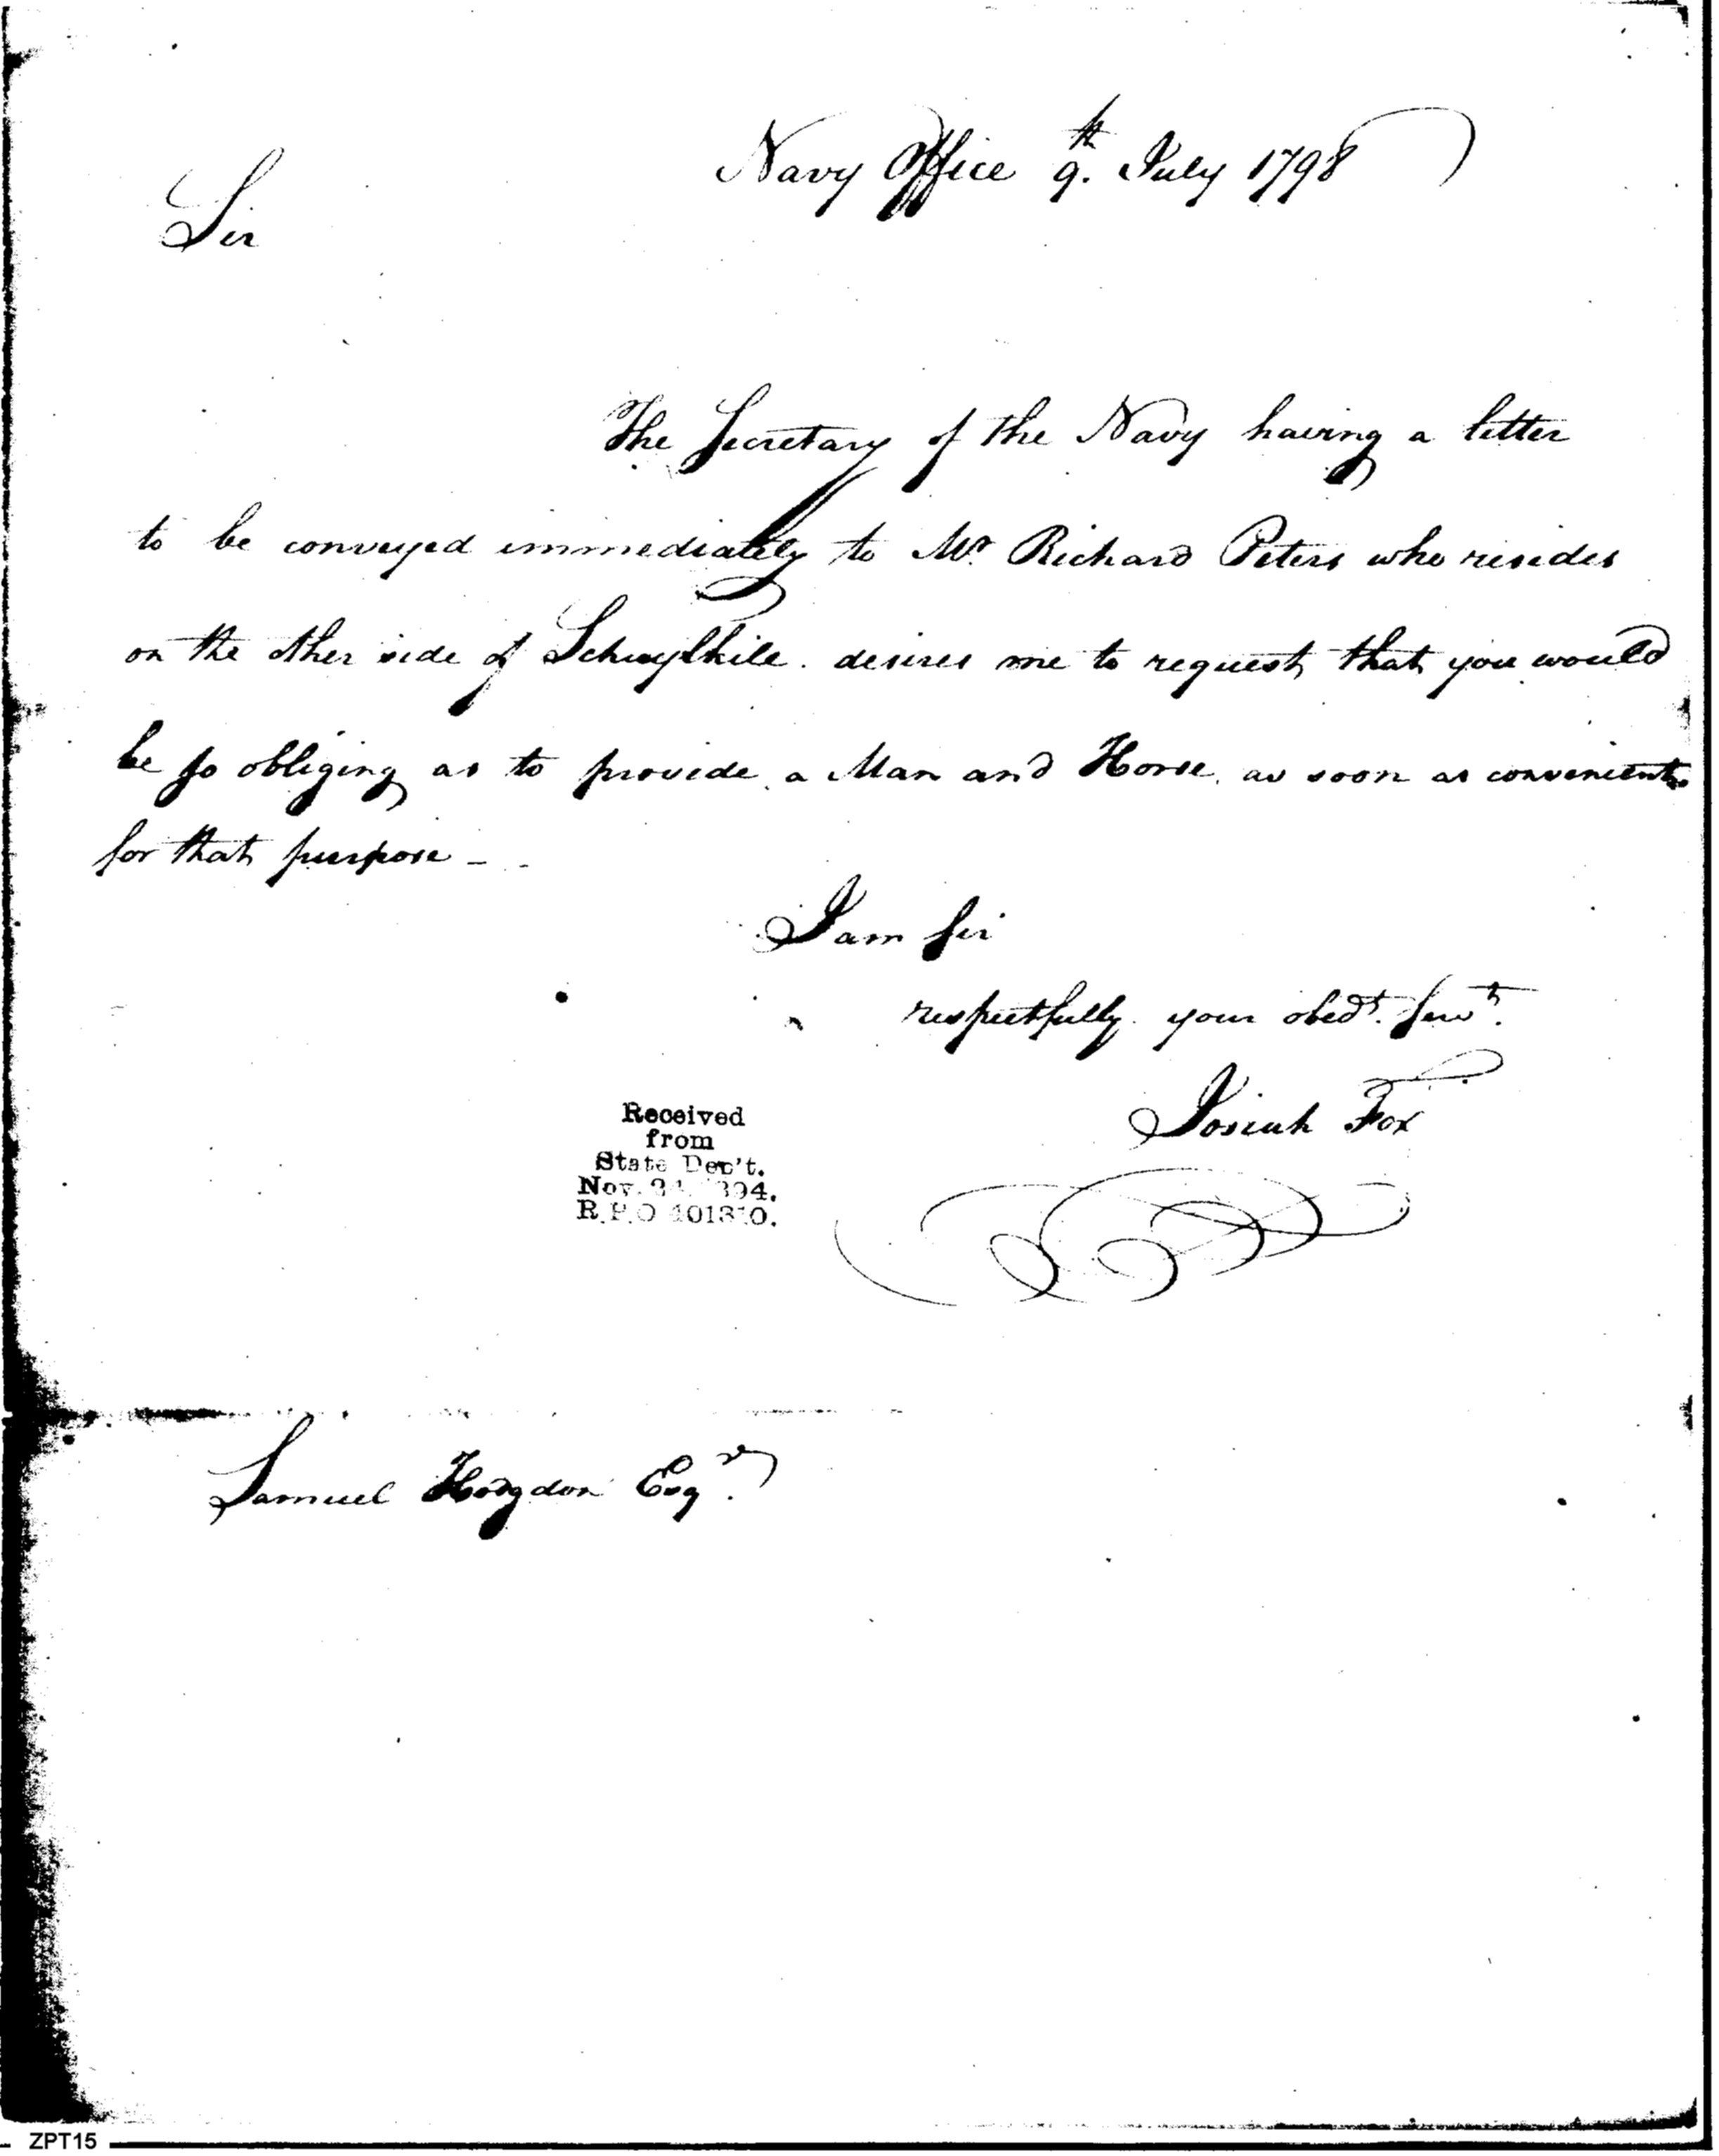 Navy Office 9.th July 1798
Sir
The Secretary of the Navy having a letter
to be conveyed immediately to Mr. Richard Peters who resides
on the other side of Schuylkile. desires me to request that you would
be so obliging as to provide a Man and Horse, as soon as convenient
for that purpose - -
I am Sir
respectfully your obedt. Servt.
Josiah Fox
Received
from
State Dep't.
Nov.
R.P.O
Samuel Hodgdon Esqr.
ZPT15